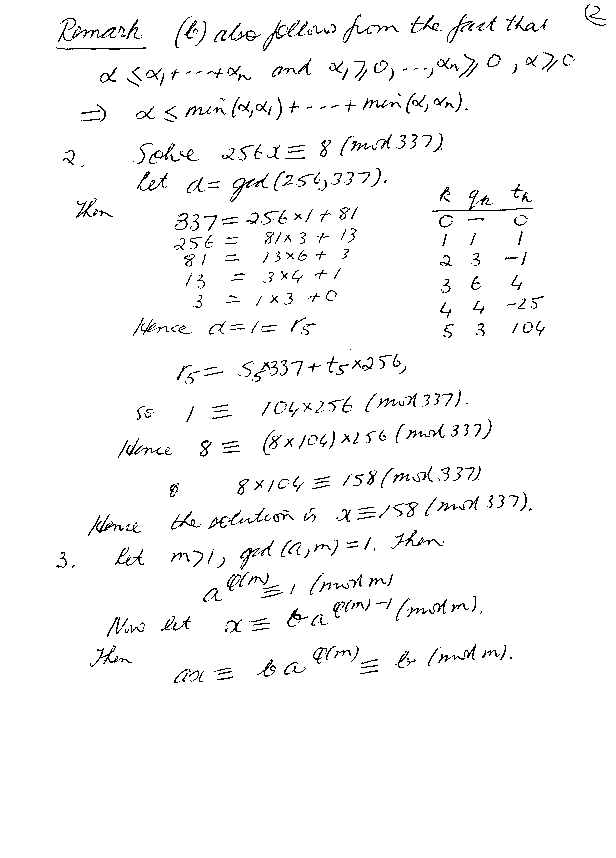 (2
Remark (b) also follows from the fact that
α ≤ α₁ + ··· + αₙ and α₁ ≥ 0, ..., αₙ ≥ 0, α ≥ 0
⇒ α ≤ min(α, α₁) + --- + min(α, αₙ).
2. Solve 256x ≡ 8 (mod 337)
Let d = gcd(256, 337).
Then
337 = 256 × 1 + 81
256 = 81 × 3 + 13
81 = 13 × 6 + 3
13 = 3 × 4 + 1
3 = 1 × 3 + 0
k qₖ tₖ
0 — 0
1 1 1
2 3 -1
3 6 4
4 4 -25
5 3 104
Hence d = 1 = r₅
r₅ = s₅×337 + t₅×256,
so 1 ≡ 104×256 (mod 337).
Hence 8 ≡ (8×104)×256 (mod 337)
8×104 ≡ 158 (mod 337)
Hence the solution is x ≡ 158 (mod 337).
3. Let m > 1, gcd(a, m) = 1. Then
a^φ(m) ≡ 1 (mod m)
Now let x ≡ b a^φ(m)-1 (mod m).
Then
ax ≡ b a^φ(m) ≡ b (mod m).